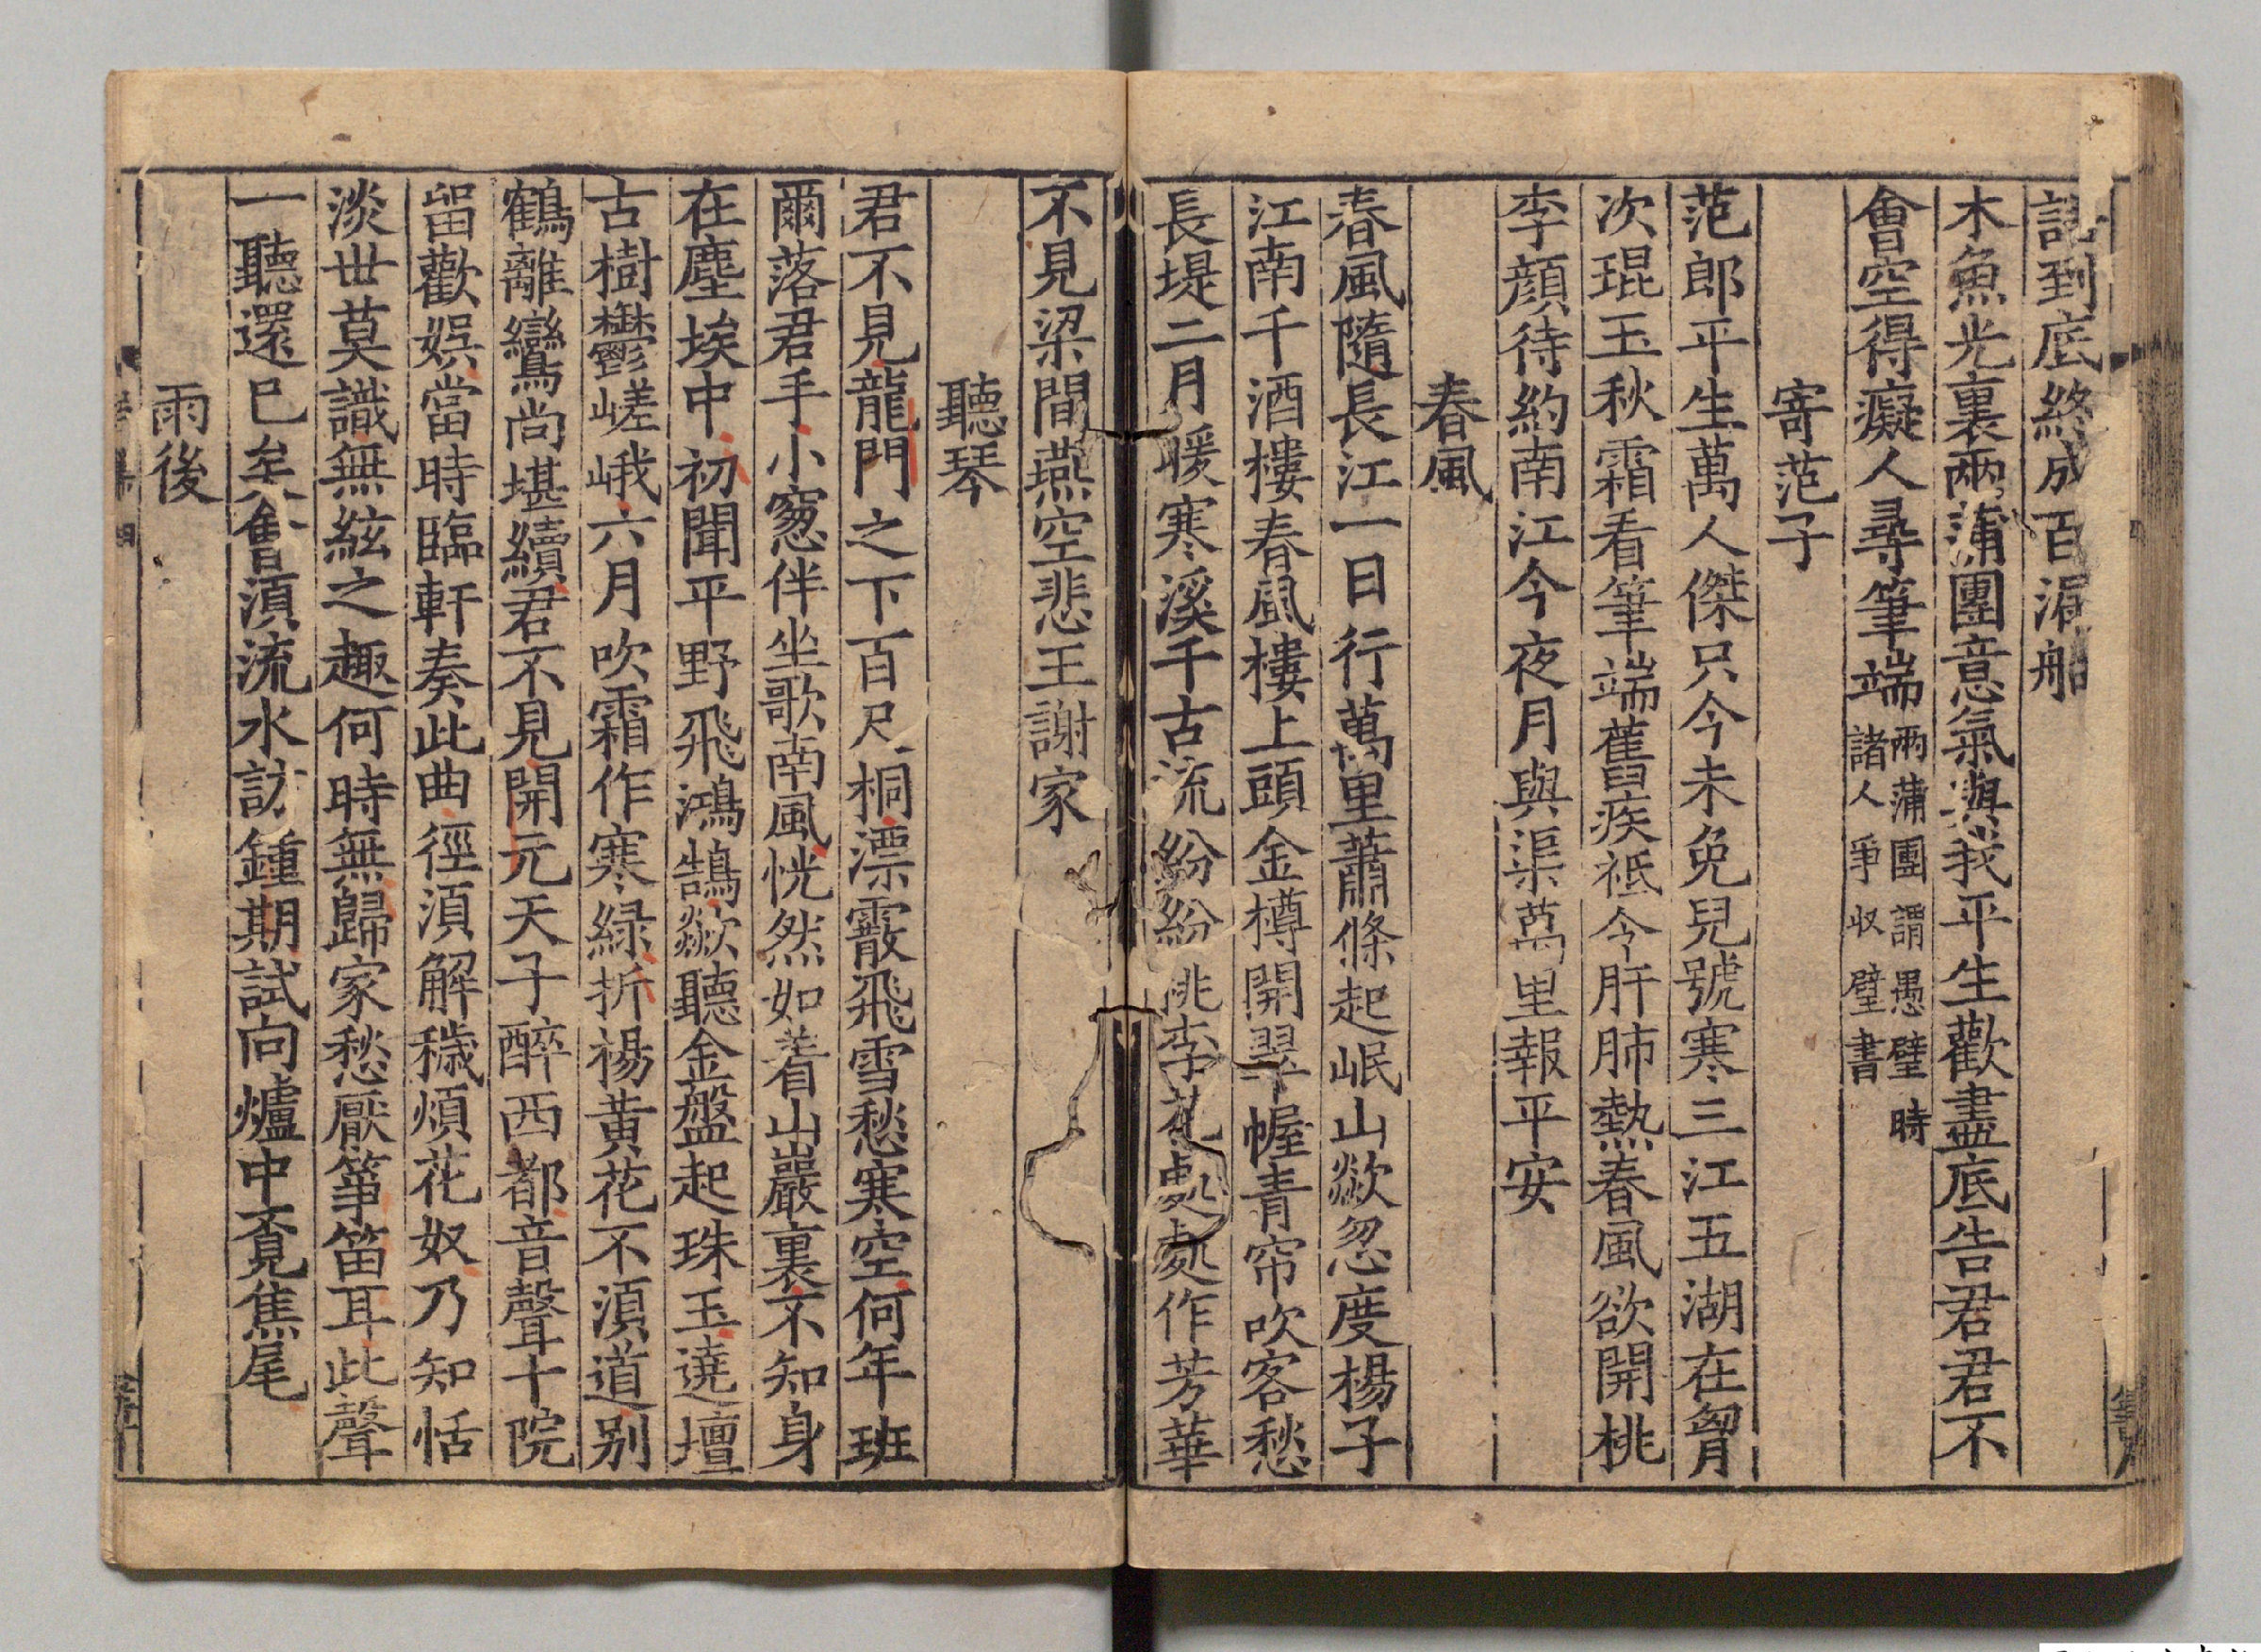 到底終成百漏船
木魚光裏兩蒲團意氣與我平生歡盡底告君君不
會空得癡人尋筆端兩蒲團謂愚璧時
諸人爭収璧書
寄范子
范郎平生萬人傑只今未免兒號寒三江五湖在胷
次琨玉秋霜看筆端舊疾祗今肝肺熱春風欲開桃
李顔待約南江今夜月與渠萬里報平安
春風
春風隨長江一日行萬里蕭條起岷山歘忽度楊子
江南千酒樓春風樓上頭金樽開翠幄青帘吹客愁
長堤二月暖寒溪千古流紛紛桃李花處處作芳華
不見梁間燕空悲王謝家
聽琴
君不見龍門之下百尺桐漂霰飛雪愁寒空何年班
爾落君手小窓伴坐歌南風恍然如着山巖裏不知身
在塵埃中初聞平野飛鴻鵠歘聽金盤起珠玉遶壇
古樹鬱嵯峨六月吹霜作寒綠折楊黃花不湏道别
鶴離鸞尚堪續君不見開元天子醉西都音聲十院
留歡娛當時臨軒奏此曲徑湏解穢煩花奴乃知恬
淡世莫識無絃之趣何時無歸家愁厭筝笛耳此聲
一聽還已矣會湏流水訪鍾期試向爐中覔焦尾
雨後